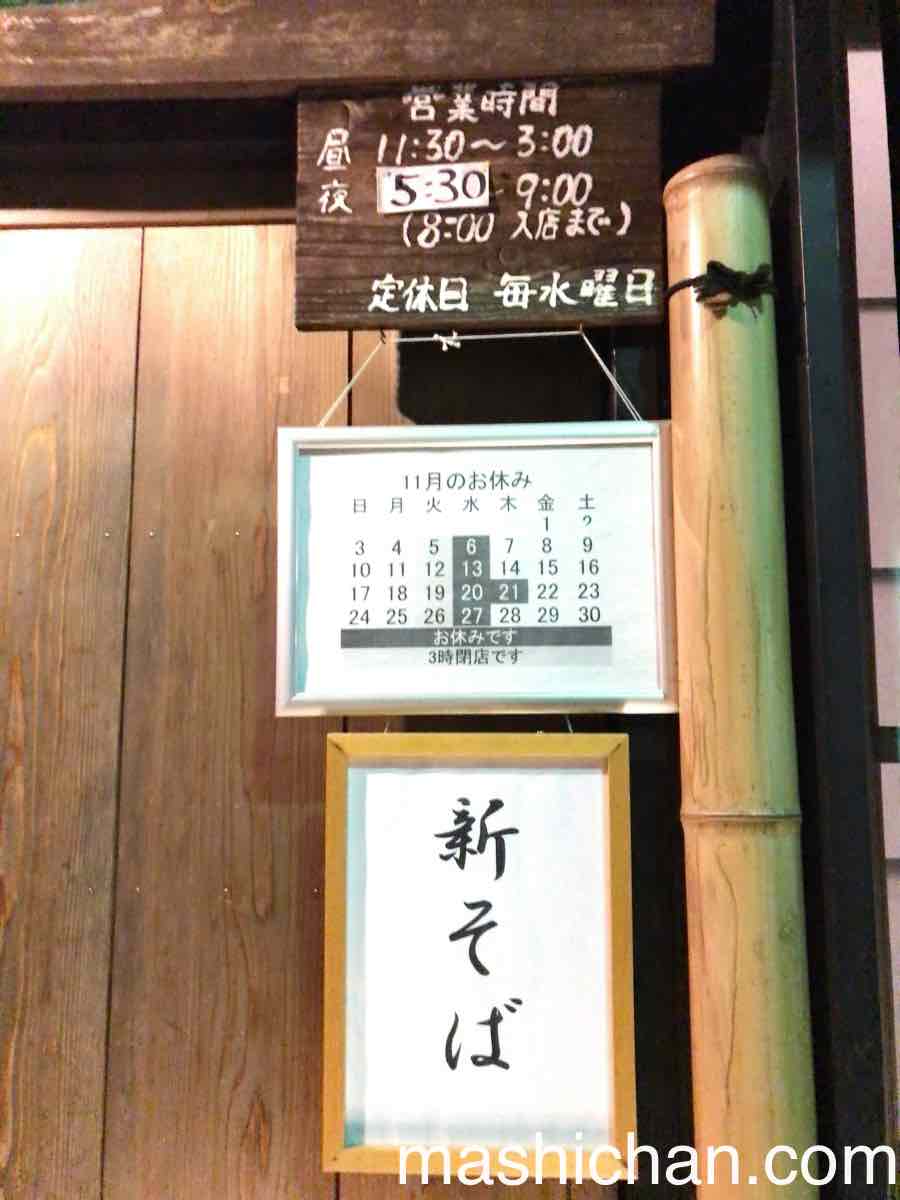 営業時間
昼 11:30〜3:00
夜 5:30 9:00
(8:00 入店まで)
定休日 毎水曜日
11月のお休み
日 月 火 水 木 金 土
1 2
3 4 5 6 7 8 9
10 11 12 13 14 15 16
17 18 19 20 21 22 23
24 25 26 27 28 29 30
お休みです
3時閉店です
新そば
mashichan.com